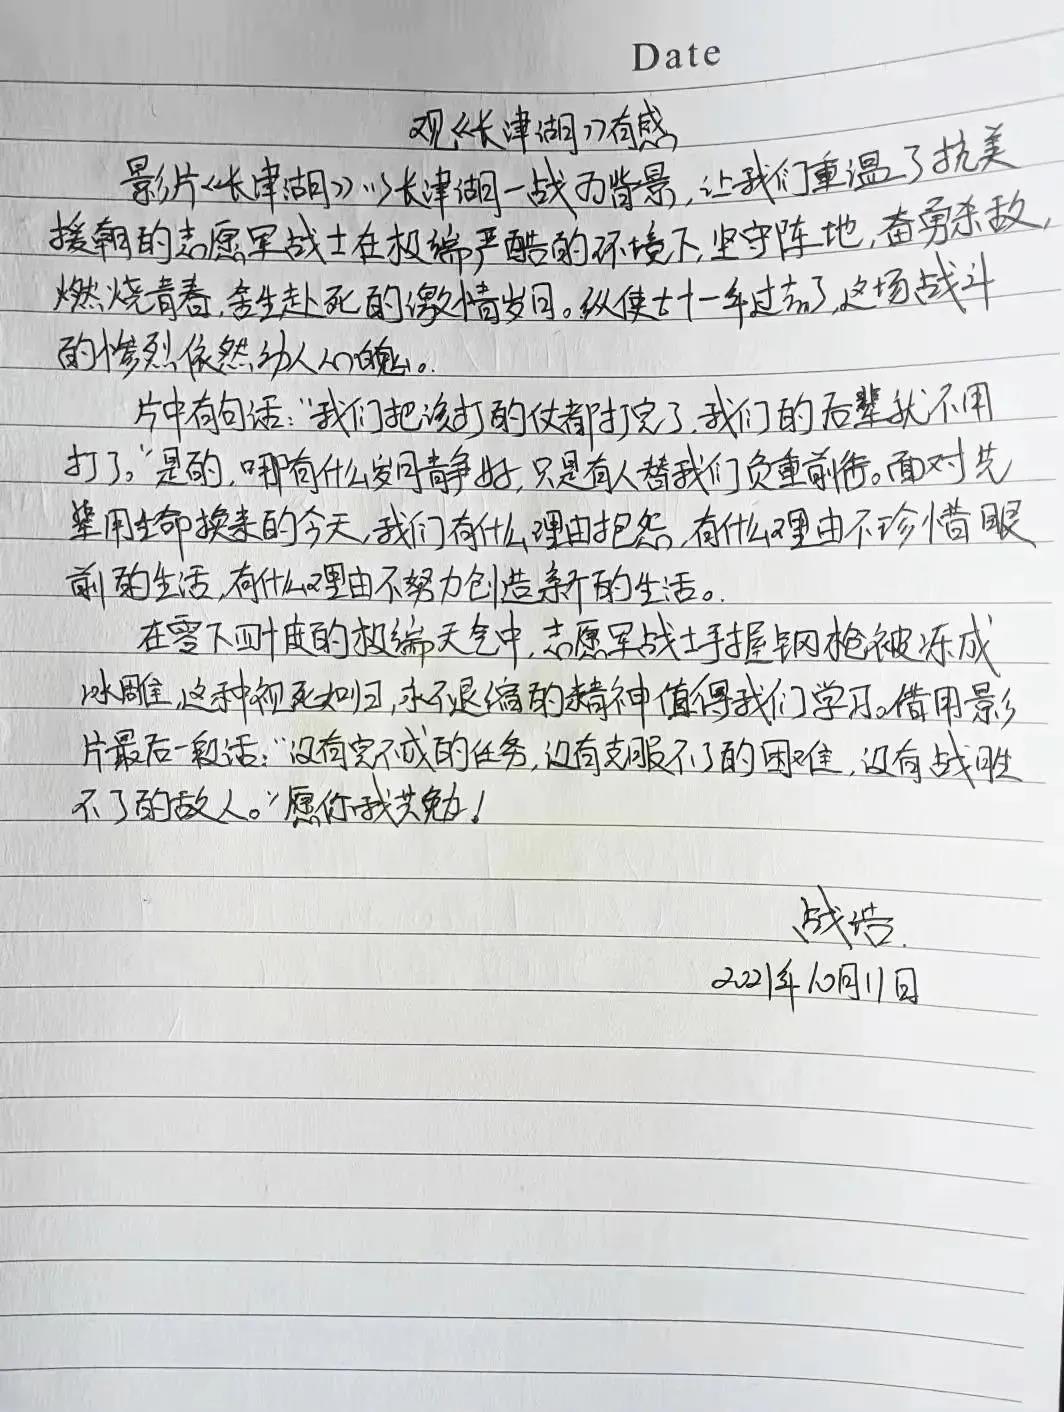 Date
观《长津湖》有感
影片《长津湖》以长津湖一战为背景,让我们重温了抗美
援朝的志愿军战士在极端严酷的环境下,坚守阵地,奋勇杀敌,
燃烧青春,舍生赴死的激情岁月。纵使七十一年过去了,这场战斗
的惨烈依然动人心魄。
片中有句话:“我们把该打的仗都打完了,我们的后辈就不用
打了。”是的,哪有什么岁月静好,只是有人替我们负重前行。面对先
辈用生命换来的今天,我们有什么理由抱怨,有什么理由不珍惜眼
前的生活,有什么理由不努力创造新的生活。
在零下四十度的极端天气中,志愿军战士手握钢枪被冻成
冰雕,这种视死如归,永不退缩的精神值得我们学习。借用影
片最后一段话:“没有完不成的任务,没有克服不了的困难,没有战胜
不了的敌人。”愿你我共勉!
战浩
2021年10月11日